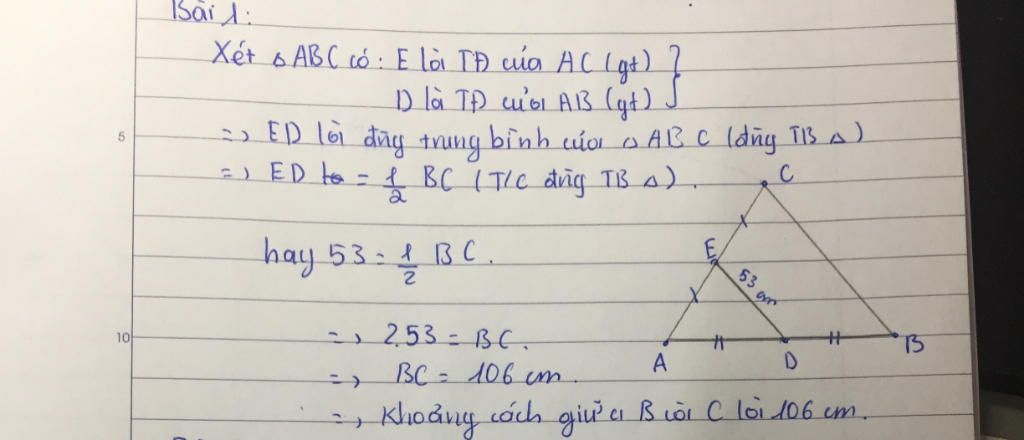 Bài 1:
Xét △ABC có: E là TĐ của AC (gt) }
D là TĐ của AB (gt)
5
=> ED là đg trung bình của △ ABC (đg TB △)
=> ED = 1/2 BC (T/C đg TB △).
hay 53 = 1/2 BC.
10
=> 2.53 = BC.
=> BC = 106 cm.
=> Khoảng cách giữa B và C là 106 cm.
C
E
53 cm
A
D
B